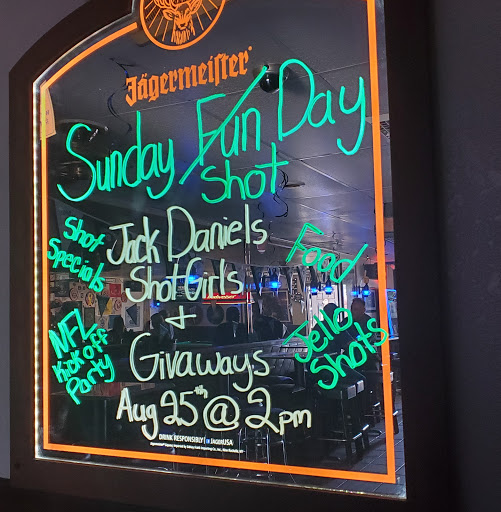 Jägermeister
Sunday Fun Day
Shot
Shot
Specials
Jack Daniels
Shot Girls
+
Givaways
Aug 25th @ 2pm
Food
Jello
Shots
NFL
Kickoff
Party
DRINK RESPONSIBLY
JägerUSA